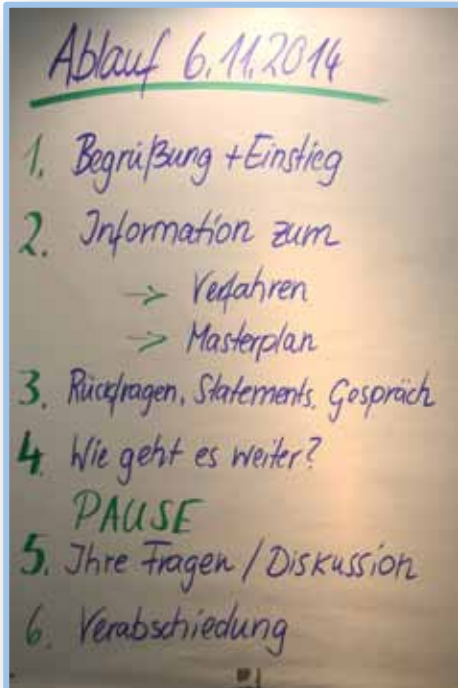 Ablauf 6.11.2014
1. Begrüßung + Einstieg
2. Information zum
-> Verfahren
-> Masterplan
3. Rückfragen, Statements, Gespräch
4. Wie geht es weiter?
PAUSE
5. Ihre Fragen / Diskussion
6. Verabschiedung